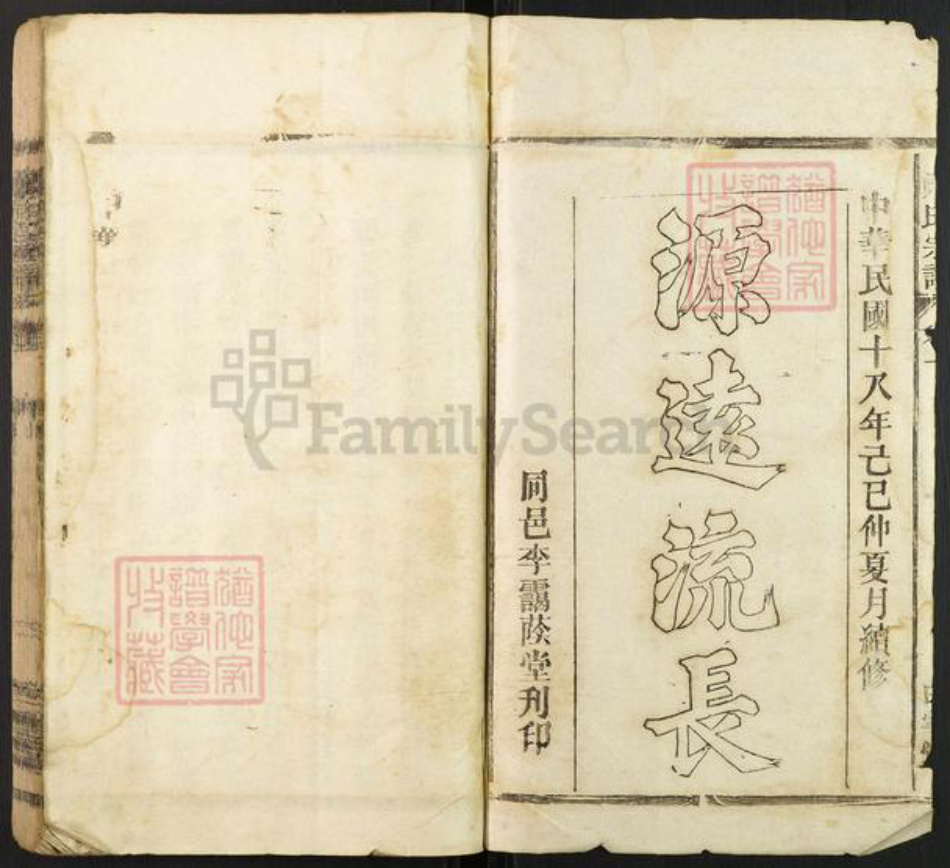 中華民國十八年己巳仲夏月續修
源遠流長
同邑李靄蔭堂刋印
氏宗譜
猶他家譜學會收藏
猶他家譜學會收藏
FamilySearch